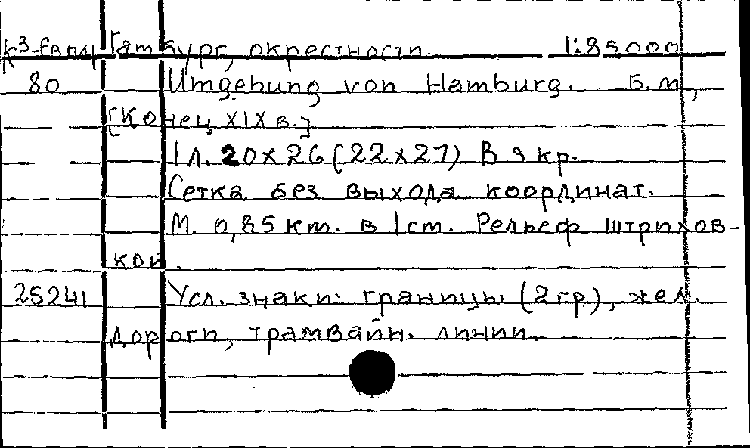 К³-Германия Гамбург, окрестности. 1:85000
80 Umgebung von Hamburg. Б.м.,
[Конец XIX в.]
1 л. 20х26 (22х27) В 3 кр.
Сетка без выхода координат.
М. 0,85 km. в 1 cm. Рельеф штрихов-
кой.
25241 Усл. знаки: границы (2 гр.), жел.
дороги, трамвайн. линии.